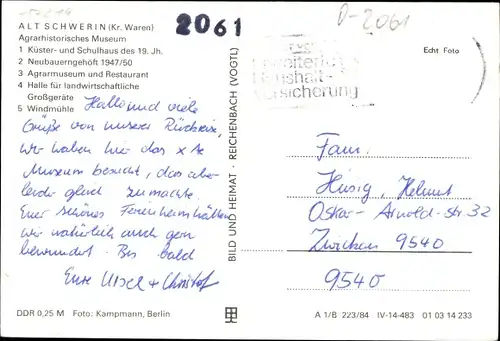 ALT SCHWERIN (Kr. Waren)
Agrarhistorisches Museum
1 Küster- und Schulhaus des 19. Jh.
2 Neubauerngehöft 1947/50
3 Agrarmuseum und Restaurant
4 Halle für landwirtschaftliche
Großgeräte
5 Windmühle
2061
D-2061
Echt Foto
Erweiterte
Haushalt-
versicherung
Hallo und viele
Grüße von unserer Rückreise,
wir haben hier das
Museum besucht, das aber
leider gleich zumachte.
Euer schönes Ferienheim hätten
wir natürlich auch gern
bewundert. Bis bald
Eure Ursel + Christof
BILD UND HEIMAT · REICHENBACH (VOGTL)
Fam.
Hüsig, Helmut
Oskar-Arnold-str 32
Zwickau 9540
9540
DDR 0,25 M Foto: Kampmann, Berlin
A 1/B 223/84 IV-14-483 01 03 14 233